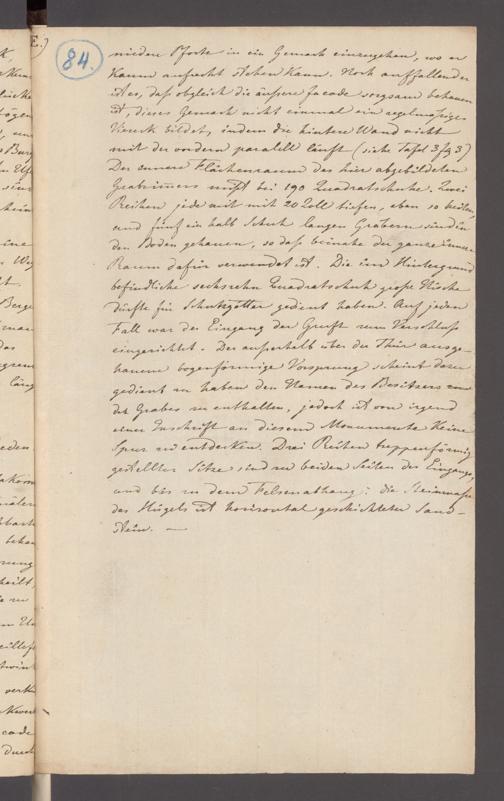 84.
niedere Pforte in ein Gemach einzugehen, wo er
kaum aufrecht stehen kann. Noch auffallender
ist es, daß obgleich die äußere facade sorgsam behauen
ist, dieses Gemach nicht einmal ein regelmäßiges
Viereck bildet, indem die hintere Wand nicht
mit der vordern paralell läuft (siehe Tafel 3 fig 3)
Der innere Flächenraum des hier abgebildeten
Grabzimers mißt bei 190 Quadratschuhe. Zwei
Reihen jede mit mit 20 Zoll tiefen, eben so breiten,
und fünf ein halb Schuh langen Gräbern sind in
den Boden gehauen, so daß beinahe der ganze innere
Raum dafür verwendet ist. Die im Hintergrund
befindliche sechszehn Quadratschuh große Nische
dürfte für Schutzgötter gedient haben. Auf jeden
Fall war der Eingang der Gruft zum Verschluß
eingerichtet. Der außerhalb über der Thür ausge-
hauene bogenförmige Vorsprung scheint dazu
gedient zu haben den Namen des Besitzers
des Grabes zu enthalten, jedoch ist von irgend
einer Inschrift an diesem Monumente keine
Spur zu entdecken. Drei Reihen treppenförmig
gestellter Sitze sind zu beiden Seiten des Einganges,
und bis zu dem Felsenabhang; die Steinmaße
des Hügels ist horizontal geschichteter Sand-
stein. —